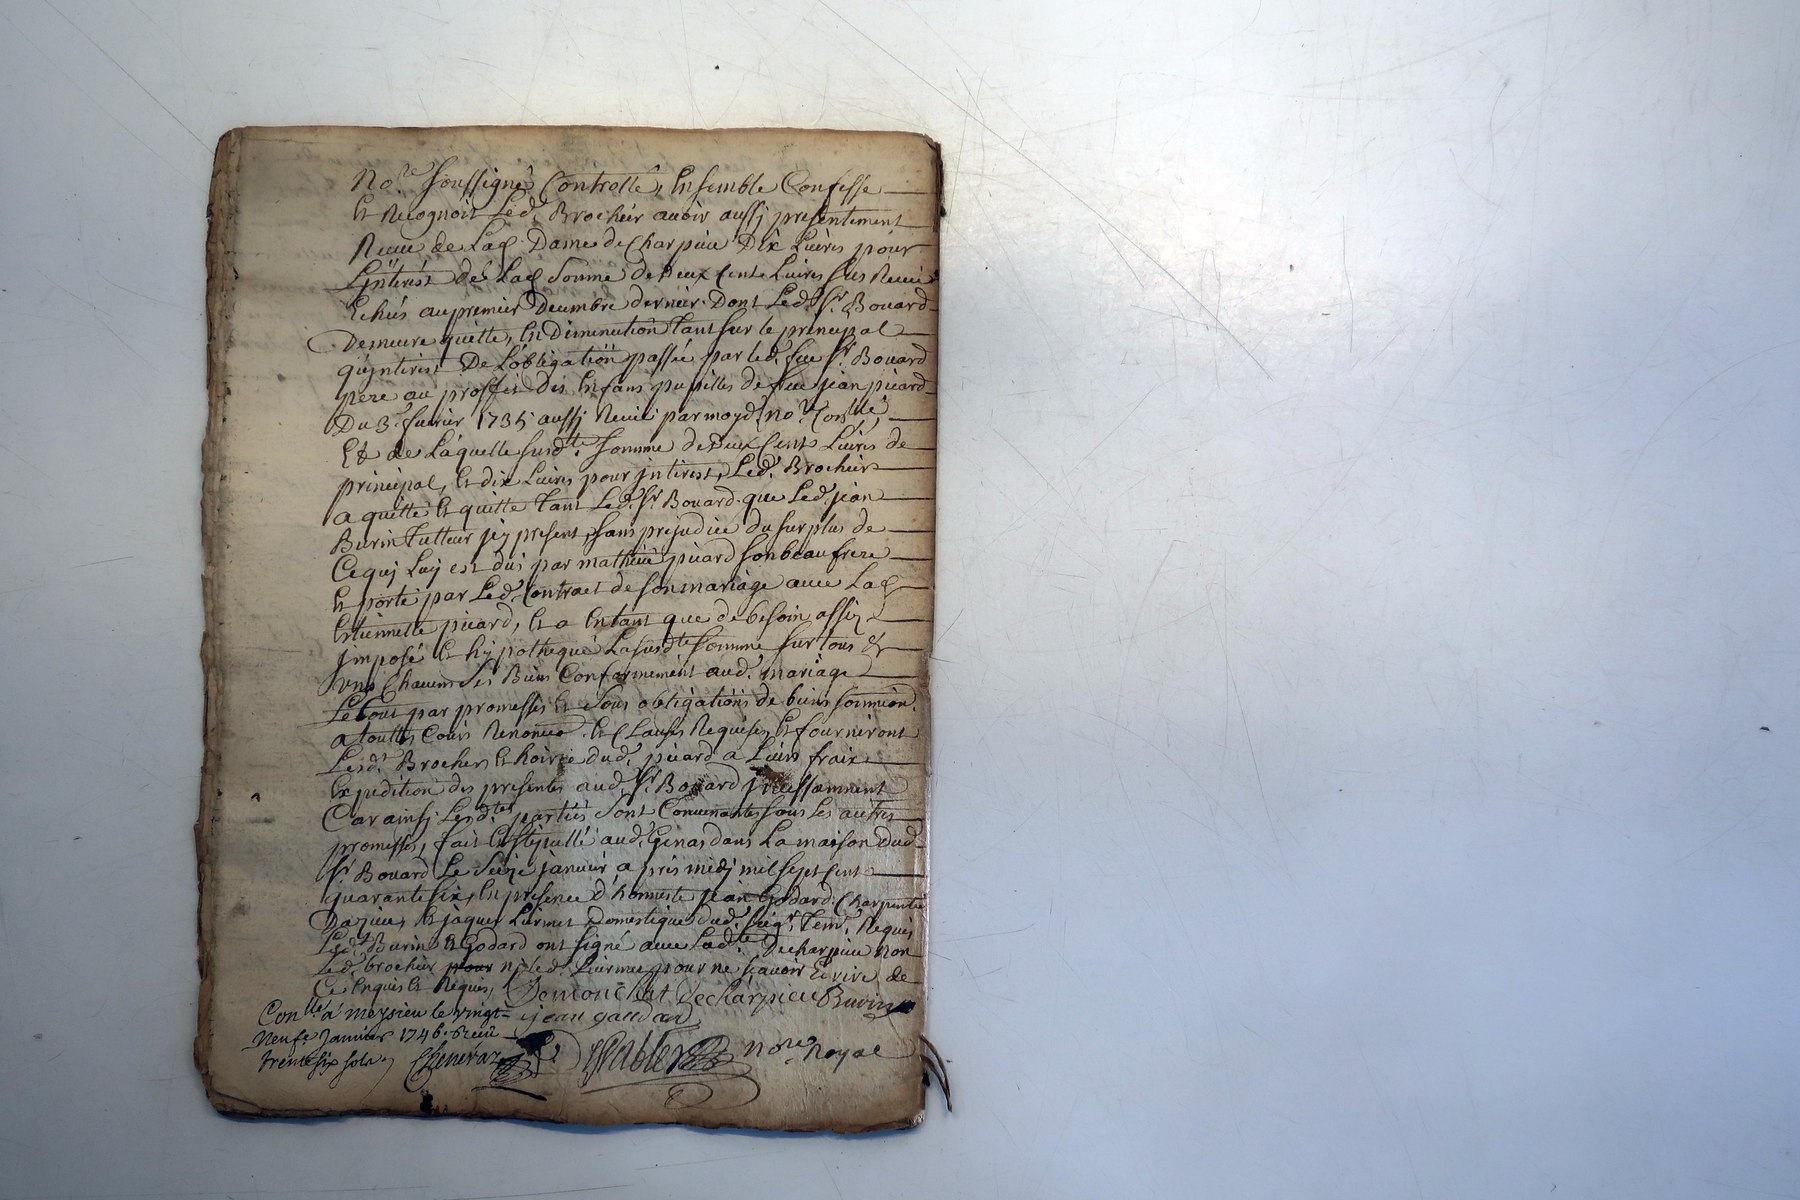 No.re soussigné Controllé, Ensemble Confesse
Et Recognoit Led. Brochier avoir aussj presentement
Receu de Lad. Dame deCharpieu Dix Livres pour
L'jnterest de Lad somme de Deux Cent Livres sus Receüe
Echûs au premier Decembre dernier. Dont Led. Sr. Bouard
Demeure quitte, En Diminution tant sur le principal
qu'jnterest De L'obligation passée par led. feu Sr. Bouard
pere au proffit des Enfans pupilles de feu jean picard
Du 3e. fevrier 1735 aussj Receüe par moyd. no.re Con.llé
Et de Laquelle susd.te somme de Deux Cents Livres de
principal, Et dix Livres pour jnterest, Led. Brochier
a quitté Et quitte tant Led. Sr. Bouard que Led. jean
Burin tutteur jcy present, sans prejudice du surplus de
Cequj Luj est dûs par mathieu picard son beaufrere
Et porté par Led. Contract de son mariage avec Lad
Estiennette picard, Et a Entant que de besoin assiz
jmposé Et hypothequé La susd.te somme sur tous &
uns Chacuns ses Biens Conformement aud. mariage
Le tout par promesses Et sous obligations de biens soumiôn.
a touttes Cours Renonce. Et Clauses Requises, Et fourniront
Lesd.t Brochier Et hoirie dud. picard a Leurs fraix
Expedition des presentes aud. Sr. Bouard jncessamment
Car ainsj Lesd.tes partiës sont Convenantes sous les autres
promesses, fait Et stipullé aud. Genas dans La maison dud
Sr. Bouard Le seize janvier aprés midj mil sept cent
quarante six, En presence d'honneste jean Godard Charpentier
Dazieu, Et jaques Liermet Domestique dud. Temt. Requis
Lesd.t Burin Et Godard ont signé avec Lad.te Decharpieu Non
Led. brochier nj led. Liermet pour ne sçavoir Ecrire de
Ce Enquis Et Requis, Demonchat decharpieu Burin
Con.llé à meysieu le vingt jean gaudar
Neufe Janvier 1746. Receu
trente six sols No.re Royal